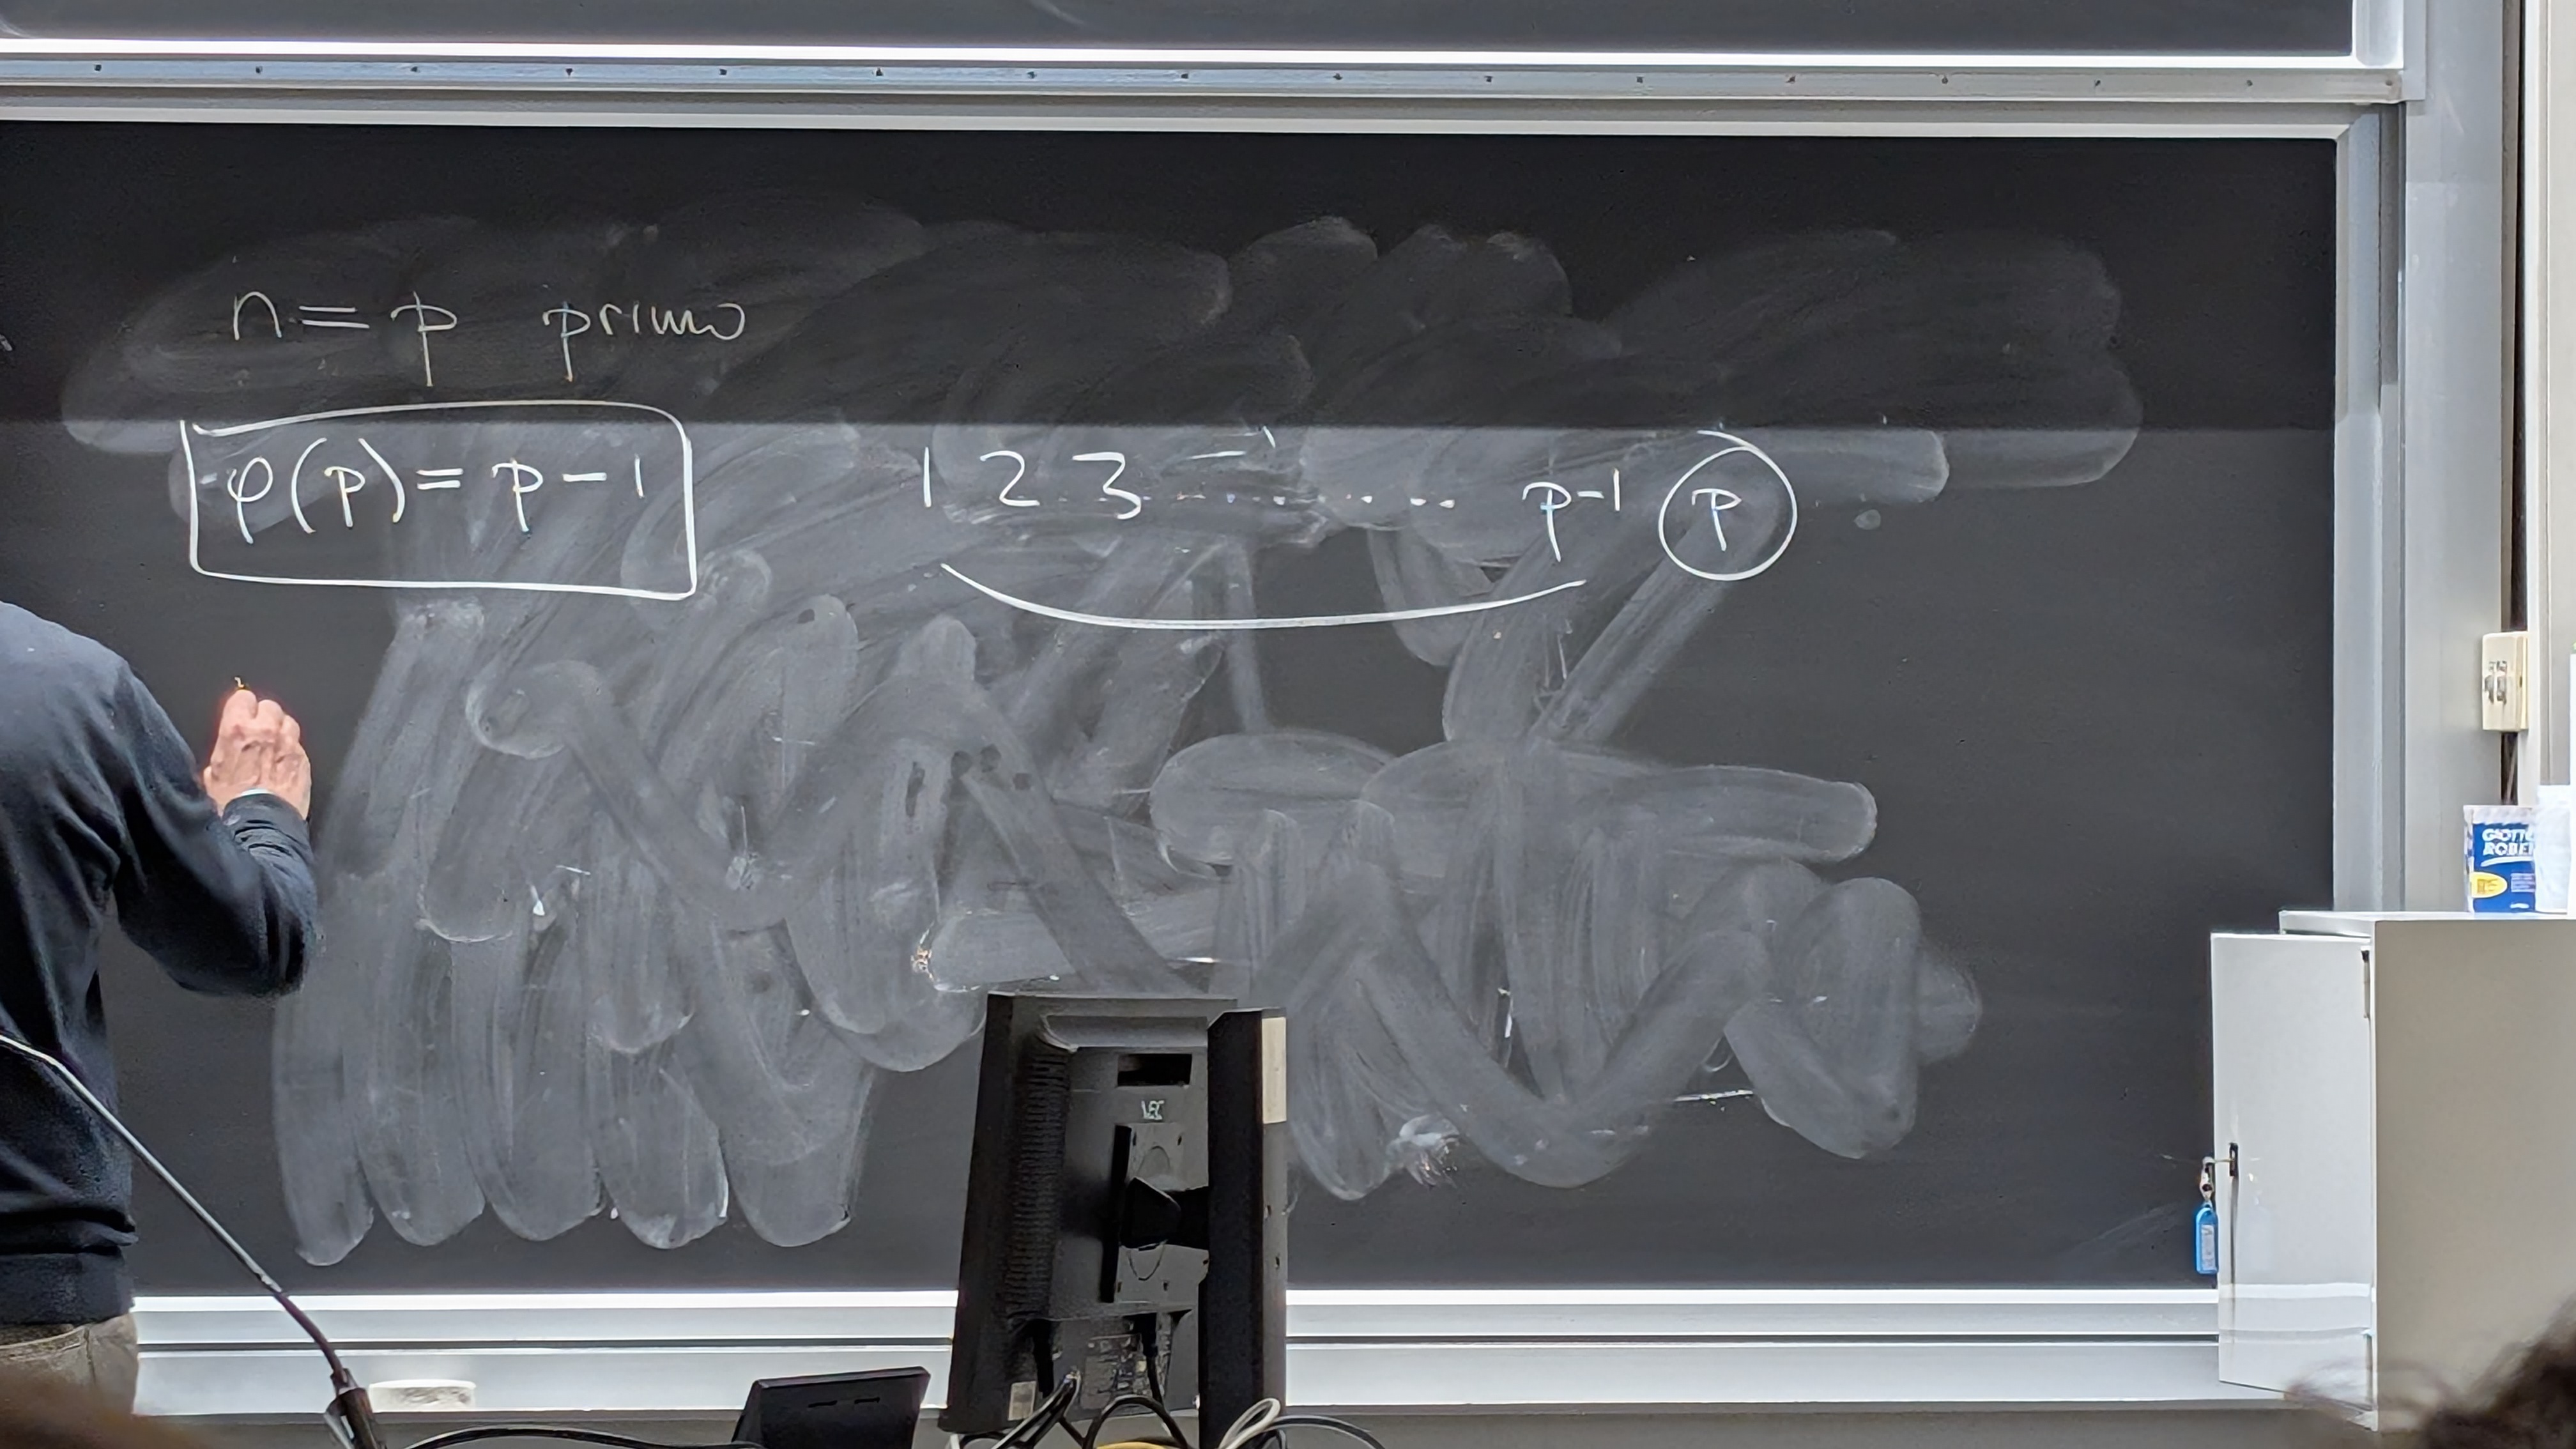 n = p primo
φ(p) = p - 1
1 2 3 ......... p-1 p
NEC
GIOTTO